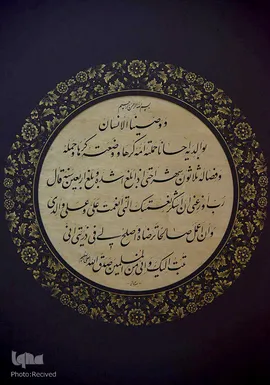 بسم الله الرحمن الرحیم
ووصینا الانسان
بوالدیه احسانا حملته امه کرها و وضعته کرها و حمله
وفصاله ثلاثون شهرا حتی اذا بلغ اشده و بلغ اربعین سنة قال
رب اوزعنی ان اشکر نعمتک التی انعمت علی و علی والدی
وان اعمل صالحا ترضاه و اصلح لی فی ذریتی انی
تبت الیک وانی من المسلمین صدق الله
iqna
Photo:Recived